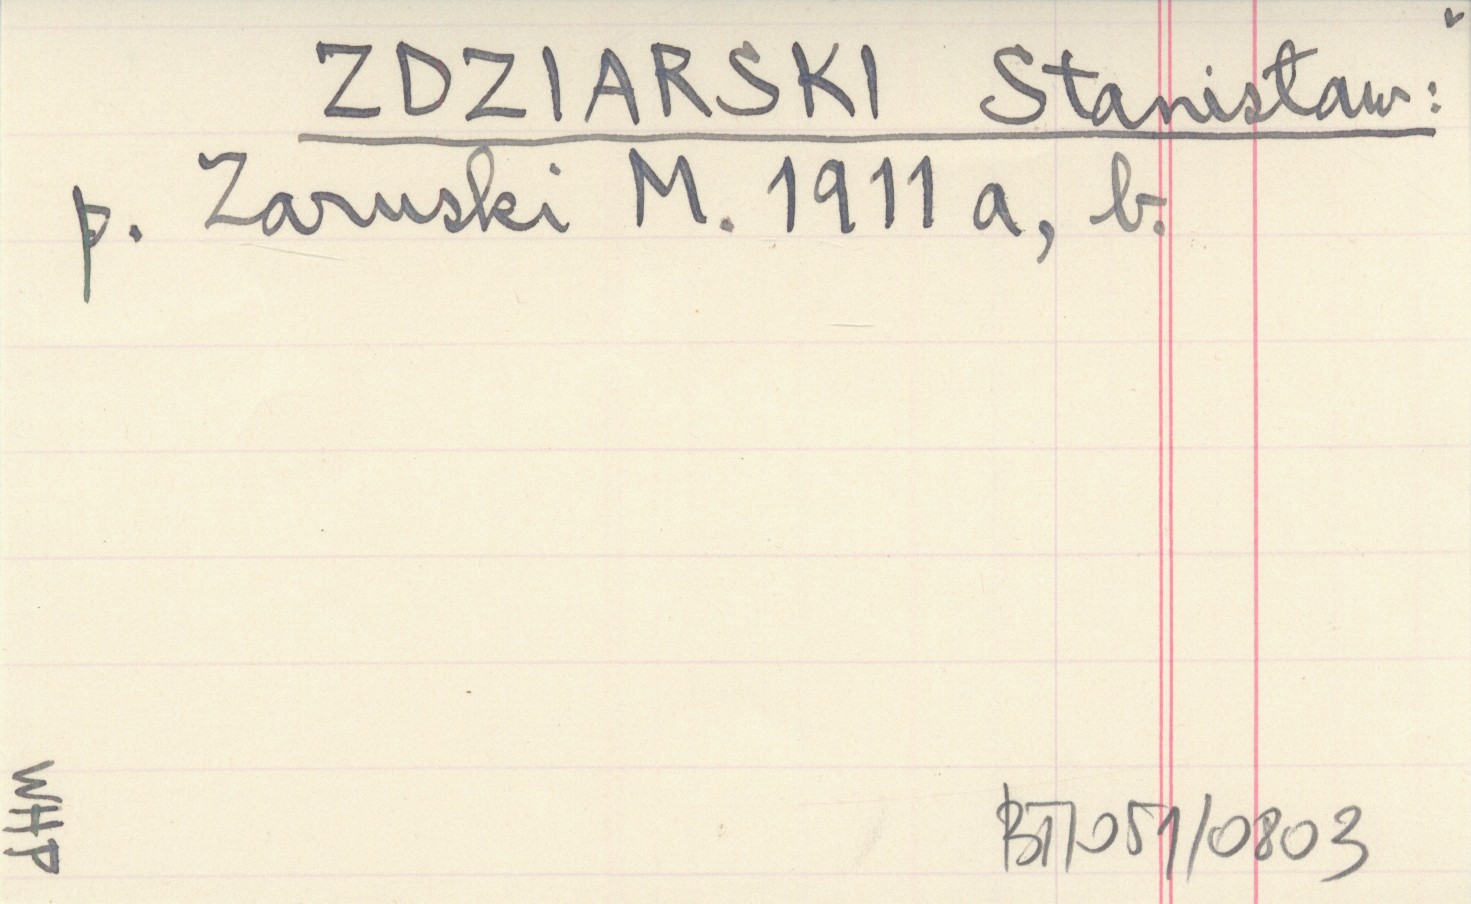 ZDZIARSKI Stanisław:
p. Zaruski M. 1911 a, b.
WHP
BT/051/0803